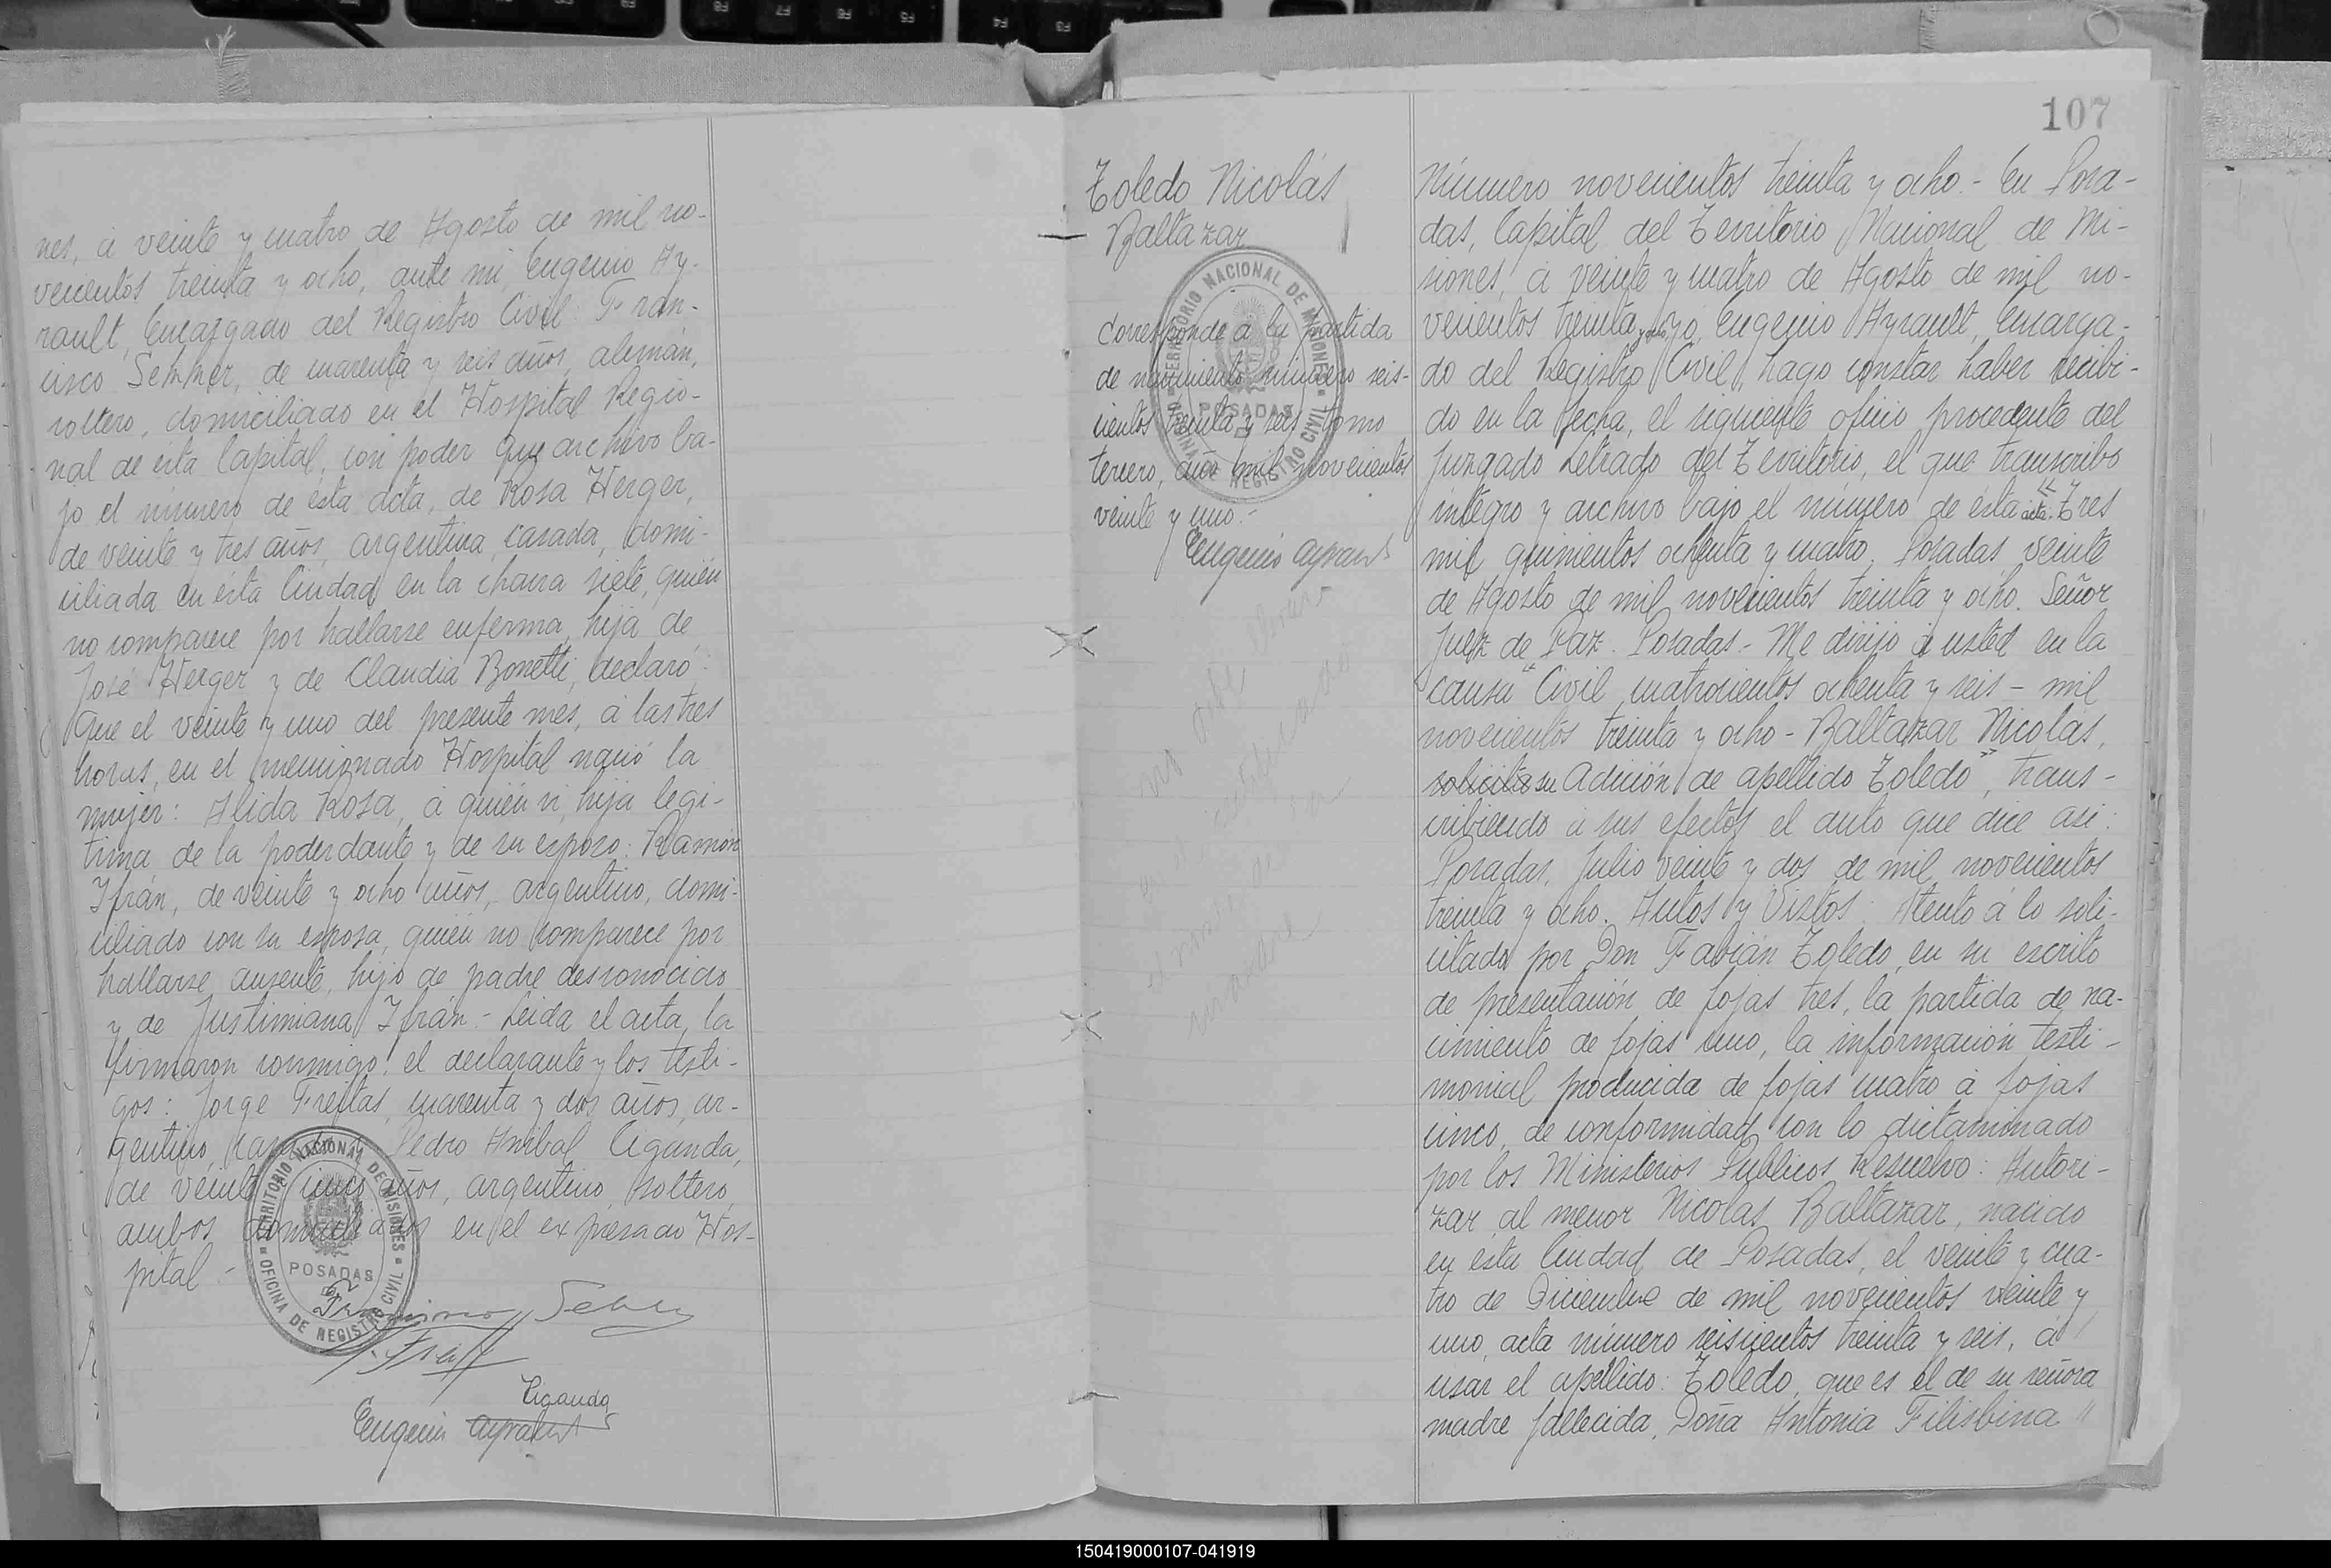 nes, á veinte y cuatro de Agosto de mil no-
vecientos treinta y ocho, ante mi, Eugenio Ay-
rault, Encargado del Registro Civil: Fran-
cisco Semmer, de cuarenta y seis años, alemán,
soltero, domiciliado en el Hospital Regio-
nal de ésta Capital, con poder que archivo ba-
jo el número de ésta acta, de Rosa Herger,
de veinte y tres años, argentina, casada, domi-
ciliada en ésta Ciudad en la chacra siete, quién
no comparece por hallarse enferma, hija de
José Herger y de Claudia Bonetti, declaró:
Que el veinte y uno del presente mes, á las tres
horas, en el mencionado Hospital nació la
mujer: Alida Rosa, á quién ví, hija legi-
tima de la poderdante y de su esposo: Ramón
Ifrán, de veinte y ocho años, argentino, domi-
ciliado con su esposa, quién no comparece por
hallarse ausente, hijo de padre desconocido
y de Justiniana Ifrán.- Leida el acta, la
firmaron conmigo, el declarante y los testi-
gos: Jorge Freitas, cuarenta y dos años, ar-
gentino, Pedro Anibal Ciganda,
de veinte y cinco años, argentino, soltero,
ambos domiciliados en el expresado Hos-
pital.-
TERRITORIO NACIONAL DE MISIONES
POSADAS
OFICINA DE REGISTRO CIVIL
Ciganda
Eugenio Ayrault
107
Toledo Nicolás
Baltazar
TERRITORIO NACIONAL DE MISIONES
POSADAS
OFICINA DE REGISTRO CIVIL
Corresponde á la partida
de nacimiento número seis-
cientos treinta y seis tomo
tercero, año mil novecientos
veinte y uno.-
Eugenio Ayrault
Número novecientos treinta y ocho.- En Posa-
das, Capital del Territorio Nacional de Mi-
siones, á veinte y cuatro de Agosto de mil no-
vecientos treinta y ocho, yo, Eugenio Ayrault, Encarga-
do del Registro Civil, hago constar haber recibi-
do en la fecha, el siguiente oficio procedente del
Juzgado Letrado del Territorio, el que transcribo
integro y archivo bajo el número de esta acta: "Tres
mil quinientos ochenta y cuatro. Posadas, veinte
de Agosto de mil novecientos treinta y ocho. Señor
Juez de Paz. Posadas.- Me dirijo á usted en la
causa "Civil cuatrocientos ochenta y seis - mil
novecientos treinta y ocho - Baltazar Nicolas,
solicita su Adición de apellido Toledo", trans-
cribiendo á sus efectos el auto que dice asi:
Posadas, Julio veinte y dos de mil novecientos
treinta y ocho. Autos y Vistos: Atento á lo soli-
citado por Don Fabián Toledo, en su escrito
de presentación de fojas tres, la partida de na-
cimiento de fojas uno, la información testi-
monial producida de fojas cuatro á fojas
cinco, de conformidad con lo dictaminado
por los Ministerios Publicos Resuelvo: Autori-
zar al menor Nicolas Baltazar, nacido
en ésta Ciudad de Posadas, el veinte y cua-
tro de Diciembre de mil novecientos veinte y
uno, acta número seiscientos treinta y seis, á
usar el apellido: Toledo, que es el de su señora
madre fallecida, Doña Antonia Filisbina "
150419000107-041919